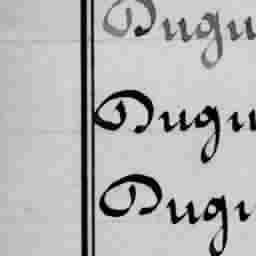 Dugu
Dugu
Dugu